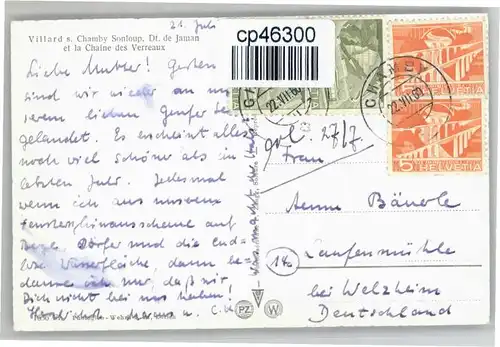 Villard s. Chamby Sonloup, Dt. de Jaman
et la Chaîne des Verreaux
21. Juli
cp46300
Liebe Mutter! Gestern
sind wir wieder an un
serem lieben Genfer See
gelandet. Es erscheint alles
noch viel schöner als im
letzten Jahr. Jedesmal
wenn ich aus unserem
Fenster hinausschaue auf
Berge, Dörfer und die end-
lose Wasserfläche, dann be-
daure ich nur, daß wir
Dich nicht bei uns haben!
Herzlichst
CHAMBY
22.VII.60
CHAMBY
22.VII.60
HELVETIA
5
HELVETIA
gol. 27/7.
Frau
Anna Bäuerle
Laufenmühle
bei Welzheim
Deutschland
14a
PZ
W